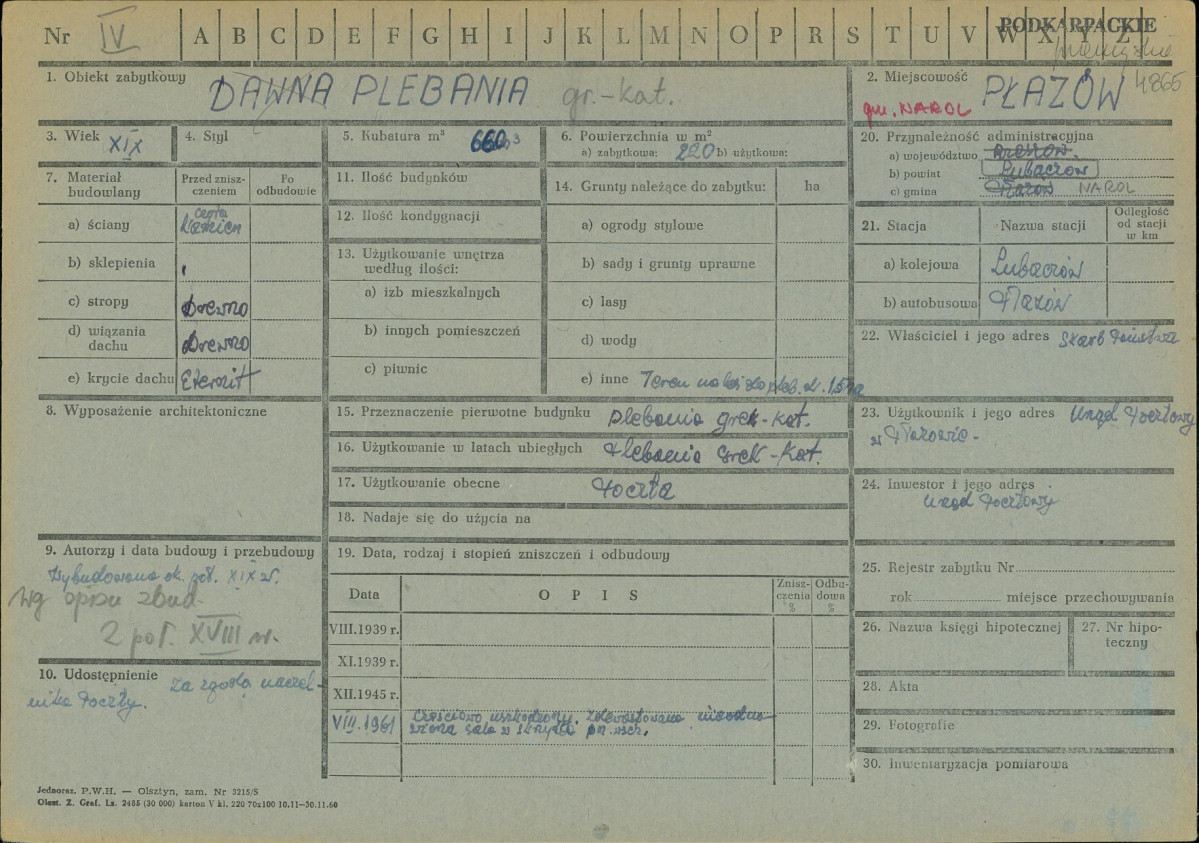 Nr IV A B C D E F G H I J K L M N O P R S T U V W X Y Z
PODKARPACKIE
1. Obiekt zabytkowy DAWNA PLEBANIA gr.-kat.
2. Miejscowość PŁAZÓW 4865
gm. NAROL
3. Wiek XIX
4. Styl
5. Kubatura m³ 660 m3
6. Powierzchnia w m²
a) zabytkowa: 220 b) użytkowa:
7. Materiał budowlany
Przed znisz-
czeniem
Po
odbudowie
a) ściany cegła
kamień
b) sklepienia
c) stropy Drewno
d) wiązania
dachu Drewno
e) krycie dachu Eternit
8. Wyposażenie architektoniczne
9. Autorzy i data budowy i przebudowy
Wybudowana ok. poł. XIX w.
Wg opisu zbud.
2 poł. XVIII w.
10. Udostępnienie za zgodą naczel-
nika Poczty.
11. Ilość budynków
12. Ilość kondygnacji
13. Użytkowanie wnętrza
według ilości:
a) izb mieszkalnych
b) innych pomieszczeń
c) piwnic
14. Grunty należące do zabytku: ha
a) ogrody stylowe
b) sady i grunty uprawne
c) lasy
d) wody
e) inne Teren
15. Przeznaczenie pierwotne budynku plebania grek-kat.
16. Użytkowanie w latach ubiegłych Plebania Grek-Kat.
17. Użytkowanie obecne Poczta
18. Nadaje się do użycia na
19. Data, rodzaj i stopień zniszczeń i odbudowy
Data OPIS Znisz-
czenia
% Odbu-
dowa
%
VIII.1939 r.
XI.1939 r.
XII.1945 r.
VIII.1961 Częściowo uszkodzony. Zdewastowana
sala w skrzydle
20. Przynależność administracyjna
a) województwo Rzeszów.
b) powiat Lubaczów
c) gmina Płazów NAROL
21. Stacja Nazwa stacji Odległość
od stacji
w km
a) kolejowa Lubaczów
b) autobusowa Płazów
22. Właściciel i jego adres Skarb Państwa
23. Użytkownik i jego adres Urząd Pocztowy
w Płazowie.
24. Inwestor i jego adres
Urząd Pocztowy
25. Rejestr zabytku Nr
rok miejsce przechowywania
26. Nazwa księgi hipotecznej
27. Nr hipo-
teczny
28. Akta
29. Fotografie
30. Inwentaryzacja pomiarowa
Jednoraz. P.W.H. — Olsztyn, zam. Nr 3215/S
Olszt. Z. Graf. Lz. 2485 (30 000) karton V kl. 220 70x100 10.11—30.11.60